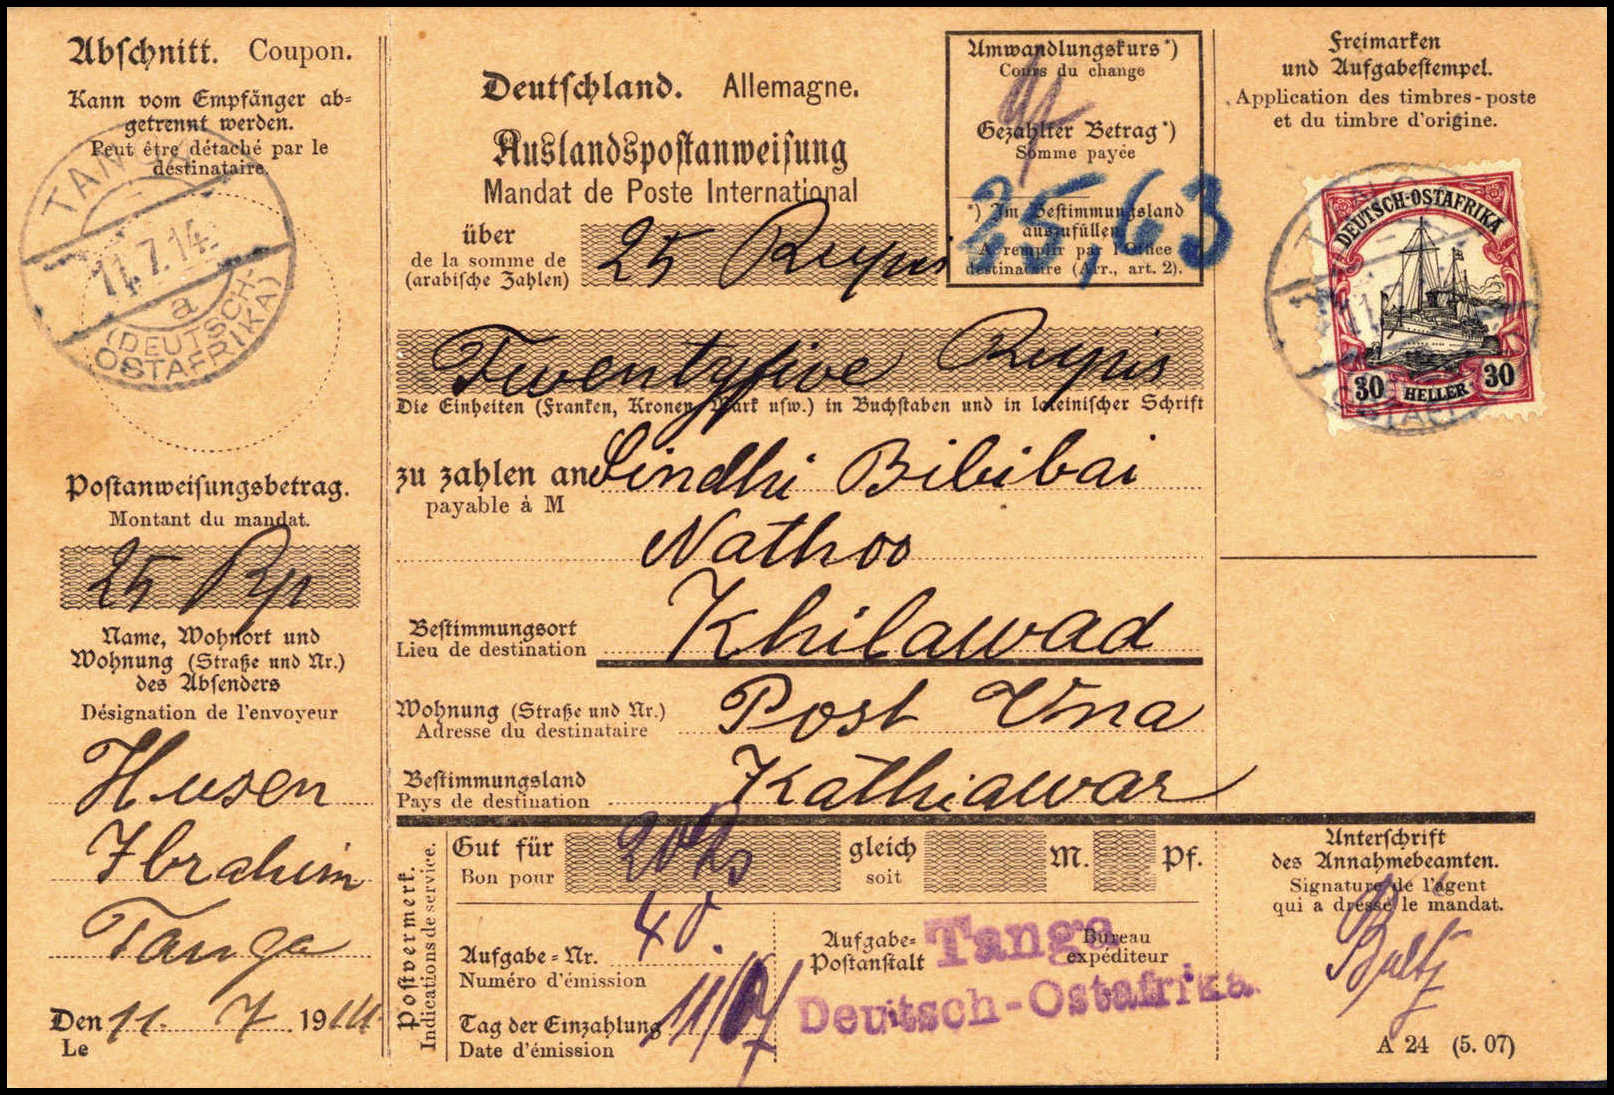 Abschnitt. Coupon.
Kann vom Empfänger ab-
getrennt werden.
Peut être détaché par le
destinataire.
TANGA
11.7.14.
a
(DEUTSCH-
OSTAFRIKA)
Postanweisungsbetrag.
Montant du mandat.
25 Rp
Name, Wohnort und
Wohnung (Straße und Nr.)
des Absenders
Désignation de l'envoyeur
Husen
Ibrahim
Tanga
Den 11. 7 1914
Le
Deutschland. Allemagne.
Auslandspostanweisung
Mandat de Poste International
über
de la somme de
(arabische Zahlen)
25 Rupis
Umwandlungskurs *)
Cours du change
Gezahlter Betrag *)
Somme payée
25,63
*) Im Bestimmungsland
auszufüllen
A remplir par l'Office
destinataire (Arr., art. 2).
Twentyfive Rupis
Die Einheiten (Franken, Kronen, Mark usw.) in Buchstaben und in lateinischer Schrift
zu zahlen an Sindhi Bibibai
payable à M
Nathoo
Bestimmungsort
Lieu de destination
Khilawad
Wohnung (Straße und Nr.)
Adresse du destinataire
Post Una
Bestimmungsland
Pays de destination
Kathiawar
Postvermerk.
Indications de service.
Gut für
Bon pour
gleich
soit
M. Pf.
Aufgabe-Nr.
Numéro d'émission
40
Tag der Einzahlung
Date d'émission
11/7
Aufgabe-
Postanstalt
Bureau
expéditeur
Tanga
Deutsch-Ostafrika
Freimarken
und Aufgabestempel.
Application des timbres-poste
et du timbre d'origine.
DEUTSCH-OSTAFRIKA
30 HELLER 30
Unterschrift
des Annahmebeamten.
Signature de l'agent
qui a dressé le mandat.
A 24 (5. 07)